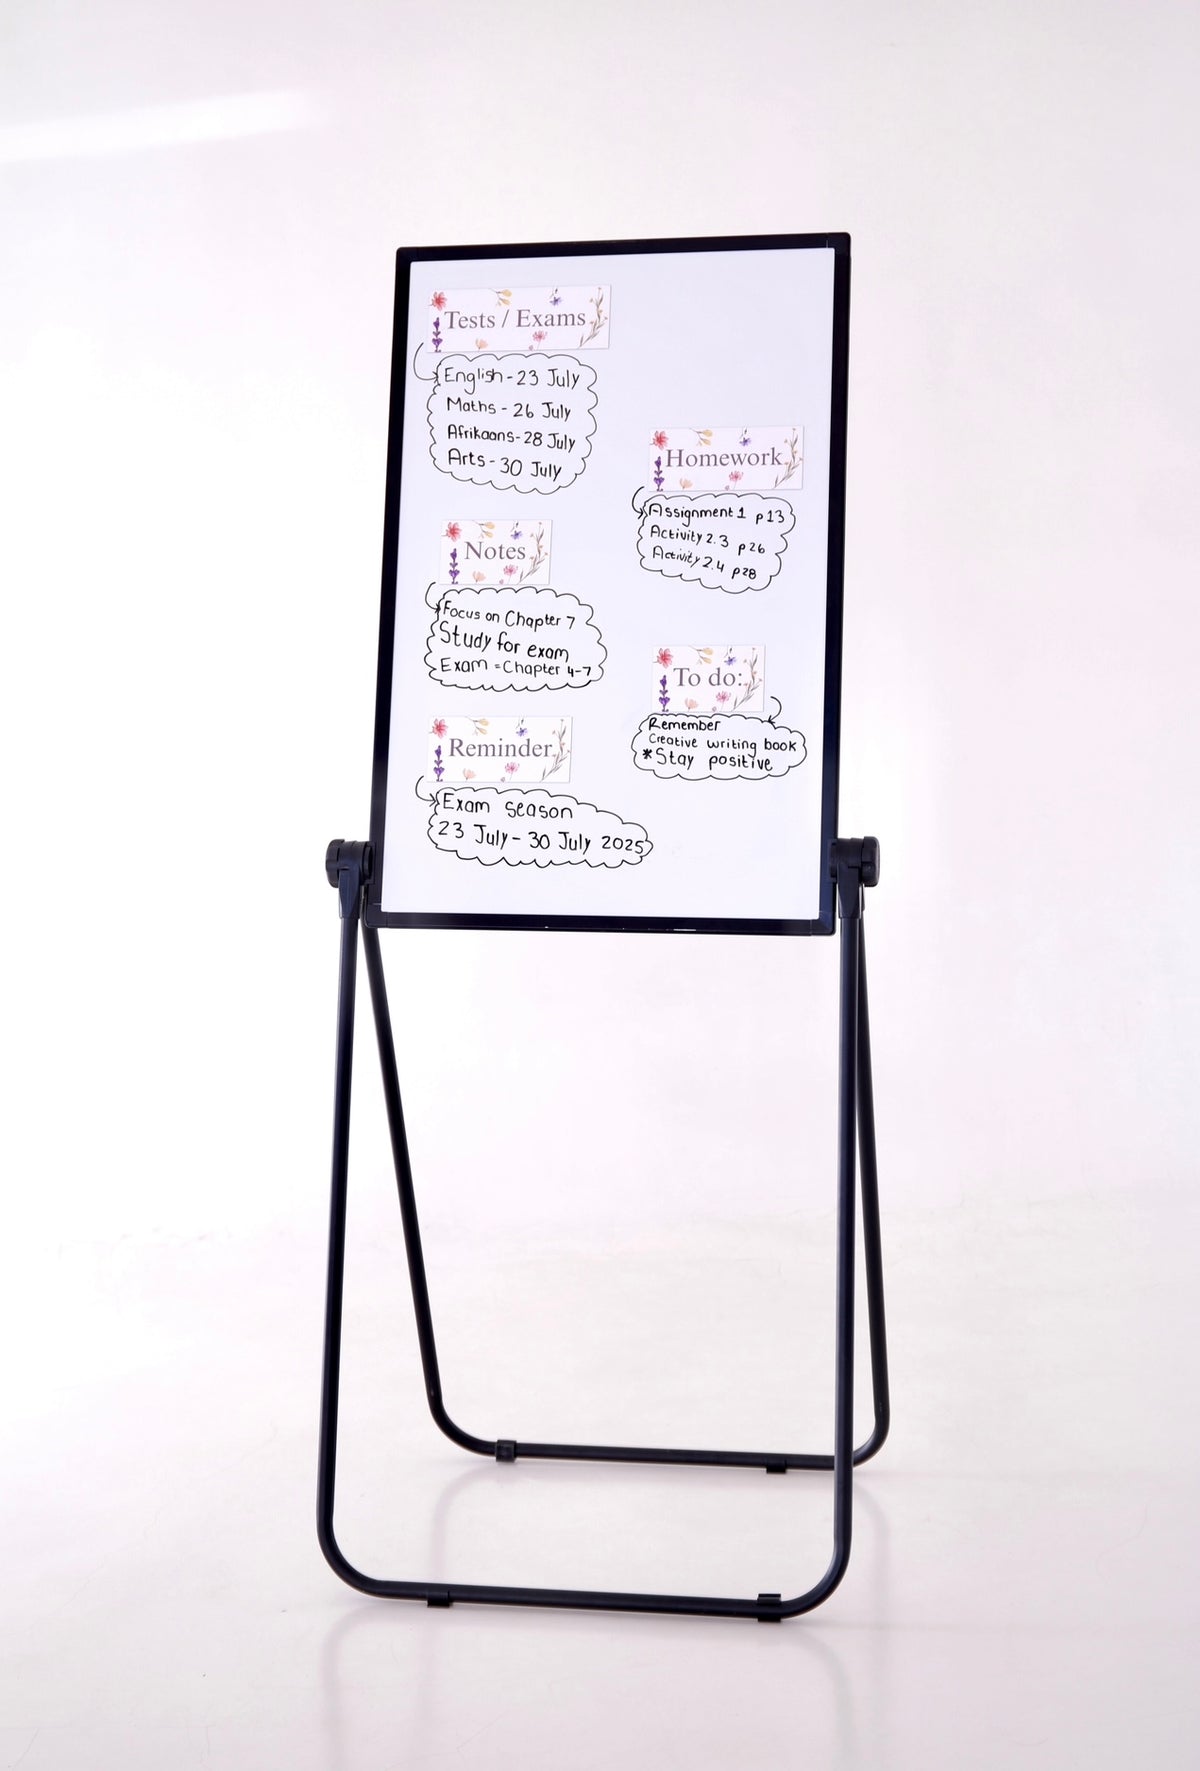 Tests / Exams
English - 23 July
Maths - 26 July
Afrikaans - 28 July
Arts - 30 July
Notes
Focus on Chapter 7
Study for exam
Exam = Chapter 4-7
Reminder
Exam season
23 July - 30 July 2025
Homework
Assignment 1 p13
Activity 2.3 p26
Activity 2.4 p28
To do:
Remember
Creative writing book
*Stay positive